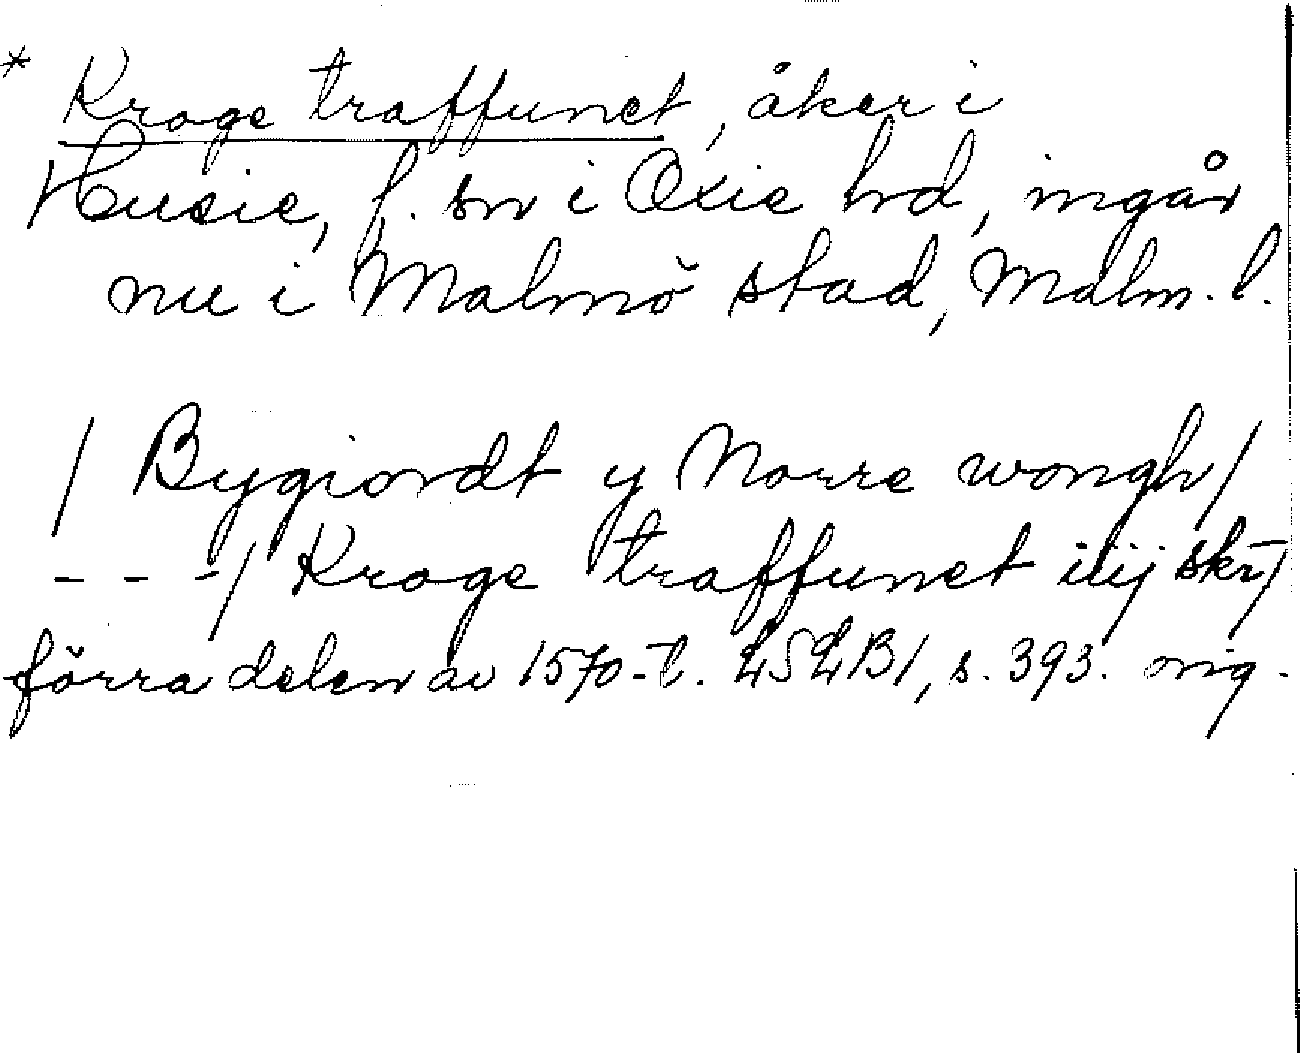 * Kroge traffunet, åker i
Husie, f. sn i Oxie hd, ingår
nu i Malmö stad, Malm. l.
/ Bygiordt y Norre wongh /
- - - / Kroge traffunet iiij skr̄ /
förra delen av 1570-t. LSLB1, s. 393. orig.